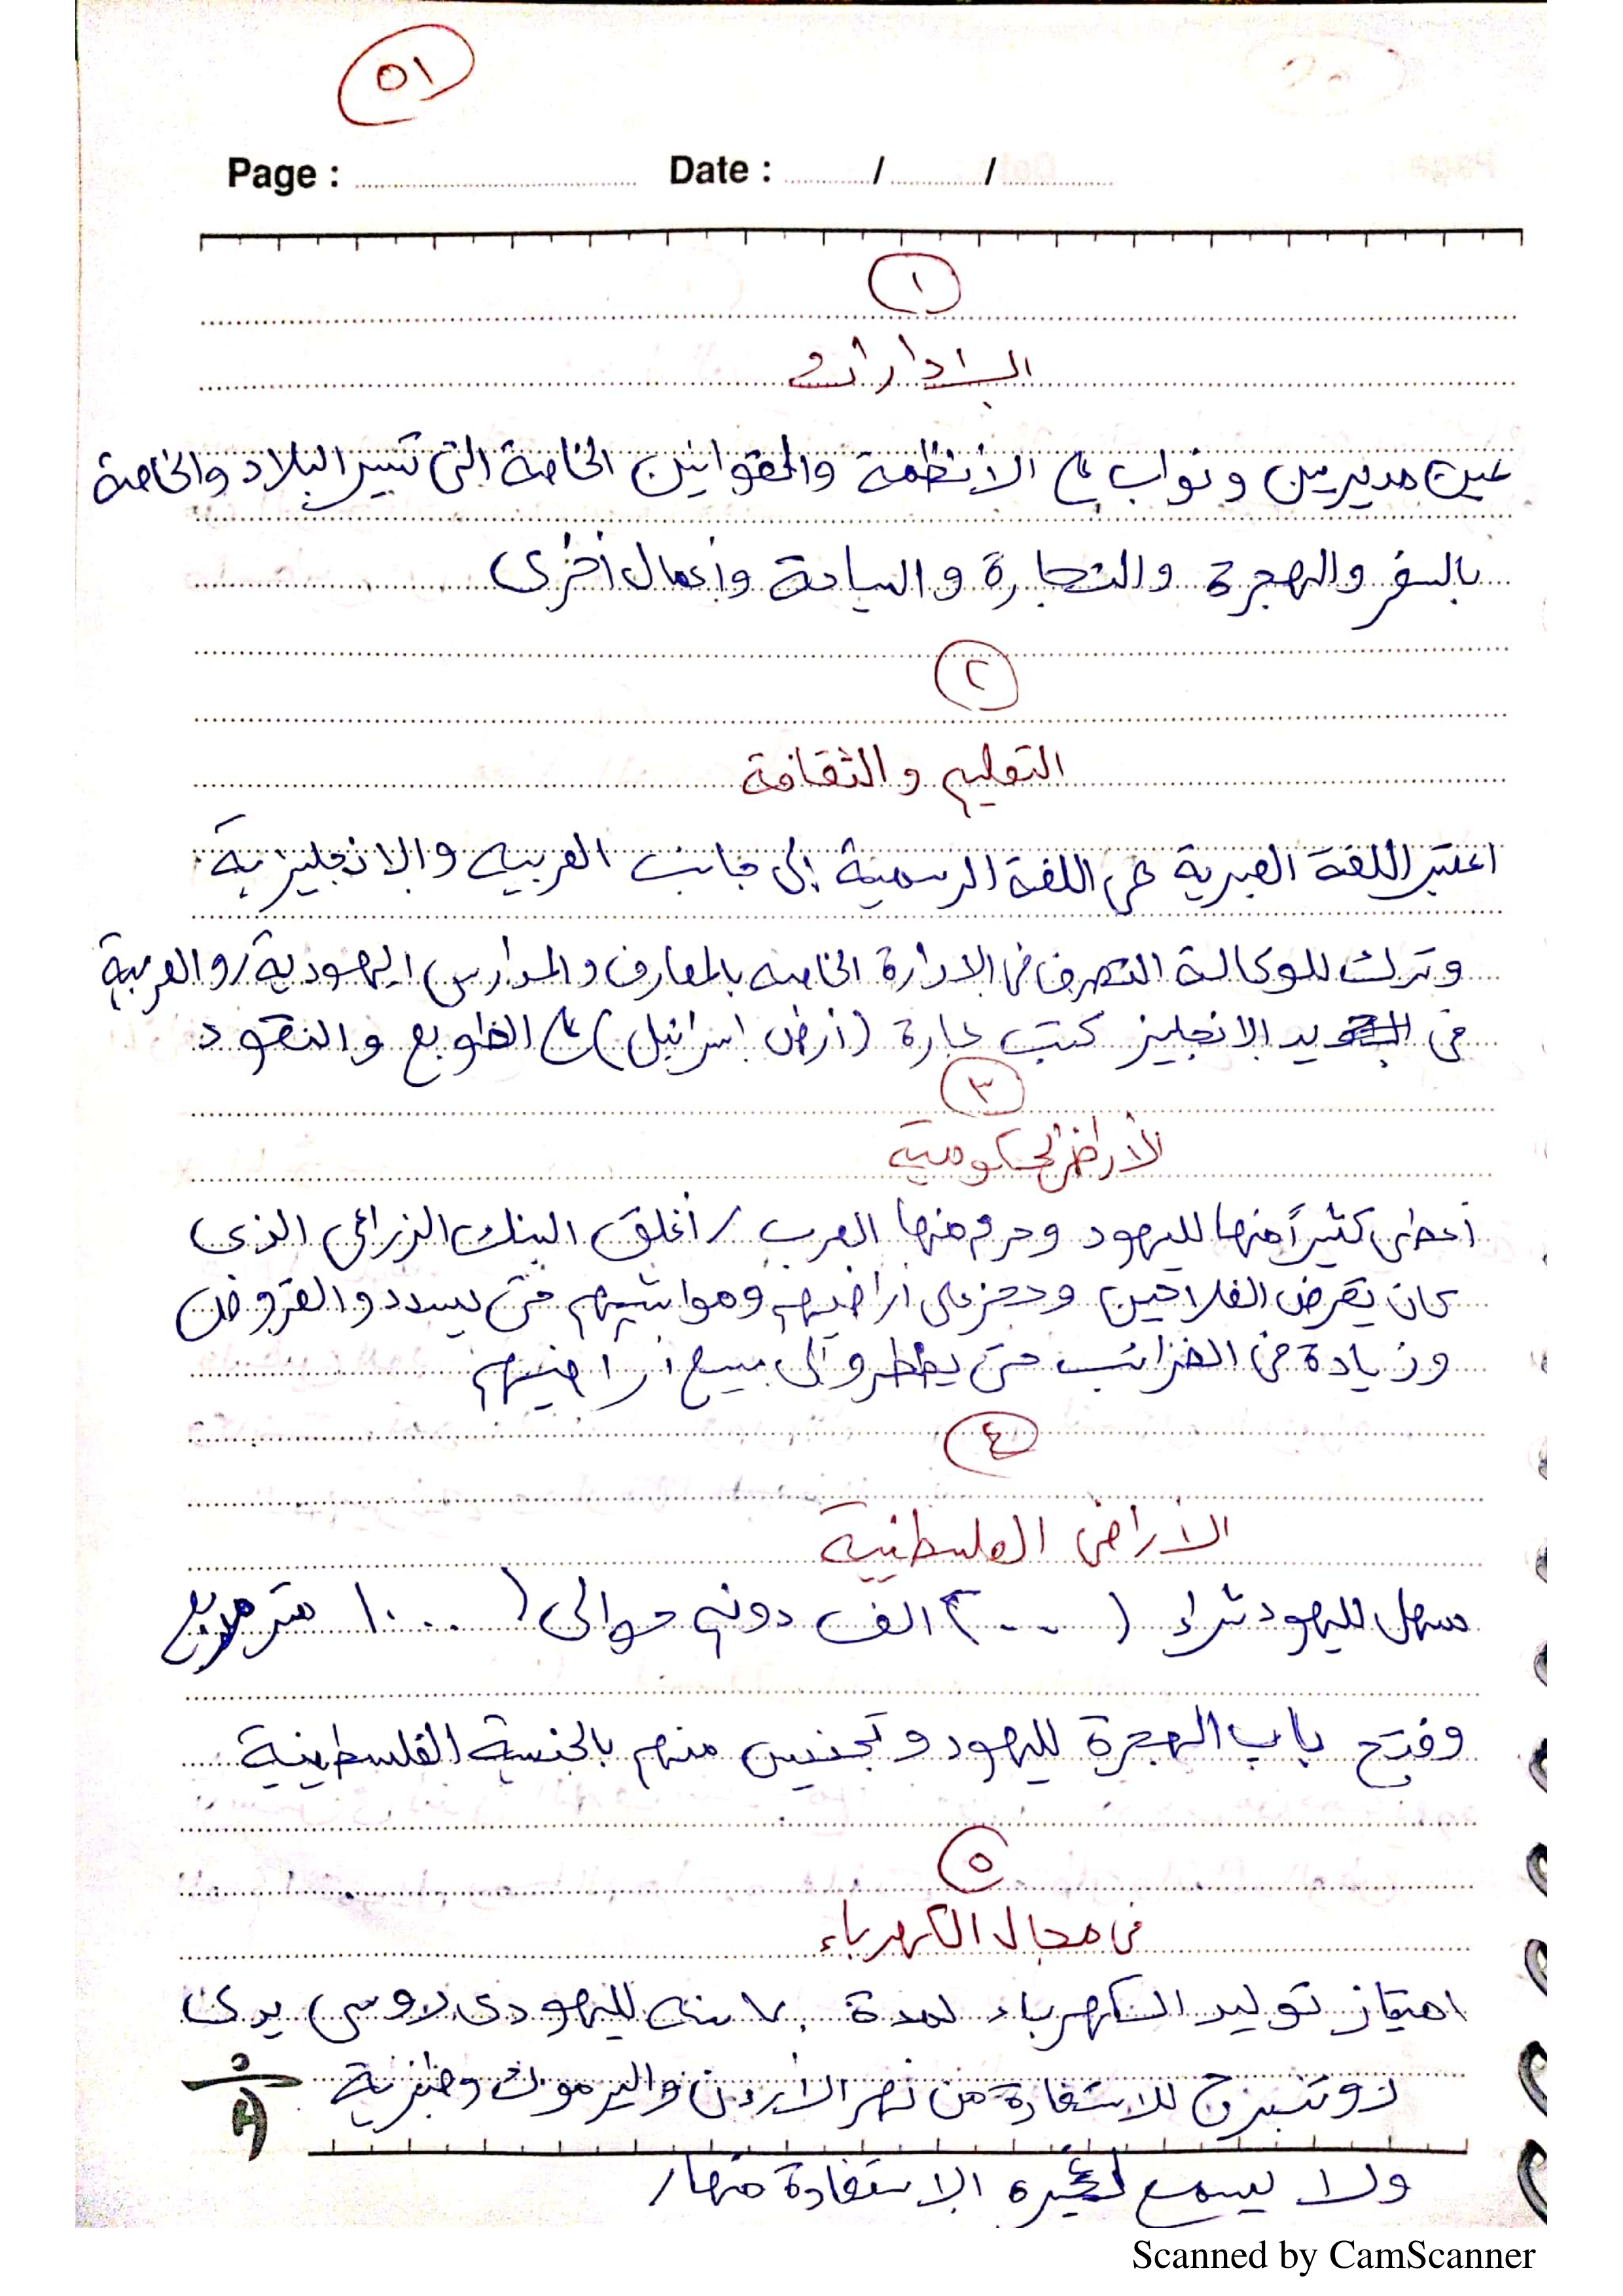 ٥١
Page : Date : / /
١
الإدارات
عين مديرين ونواب على الأنظمة والقوانين الخاصة التى تسير البلاد والخاصة
بالسفر والهجرة والتجارة والسياحة وأعمال أخرى
٢
التعليم والثقافة
اعتبر اللغة العبرية هى اللغة الرسمية إلى جانب العربيه والإنجليزية
وترك للوكالة التصرف فى الإدارة الخاصه بالمعارف والمدارس اليهودية/والعربية
فى يد الإنجليز كتب عبارة (أرض إسرائيل) على الطوبع والنقود
٣
الأراضى الحكومية
أعطى كثيراً منها لليهود وحرم منها العرب / أغلق البنك الزراعى الذى
كان يقرض الفلاحين وحجز على أراضيهم ومواشيهم حتى يسددو القروض
وزيادة فى الضرائب حتى يضطرو إلى بيع أراضيهم
٤
الأراضى الفلسطنية
سهل لليهود شراء (٢٠٠٠ الف دونم حوالى (١٠٠٠ متر مربع
وفتح باب الهجرة لليهود وتجنيس منهم بالجنسية الفلسطينية
٥
فى مجال الكهرباء
امتياز توليد الكهرباء لمدة ٧٠ سنه لليهودى روسى يدعى
روتنبرج للاستفادة من نهر الأردن واليرموك وطبرية
ولا يسمح لغيره الإستفادة منها /
Scanned by CamScanner